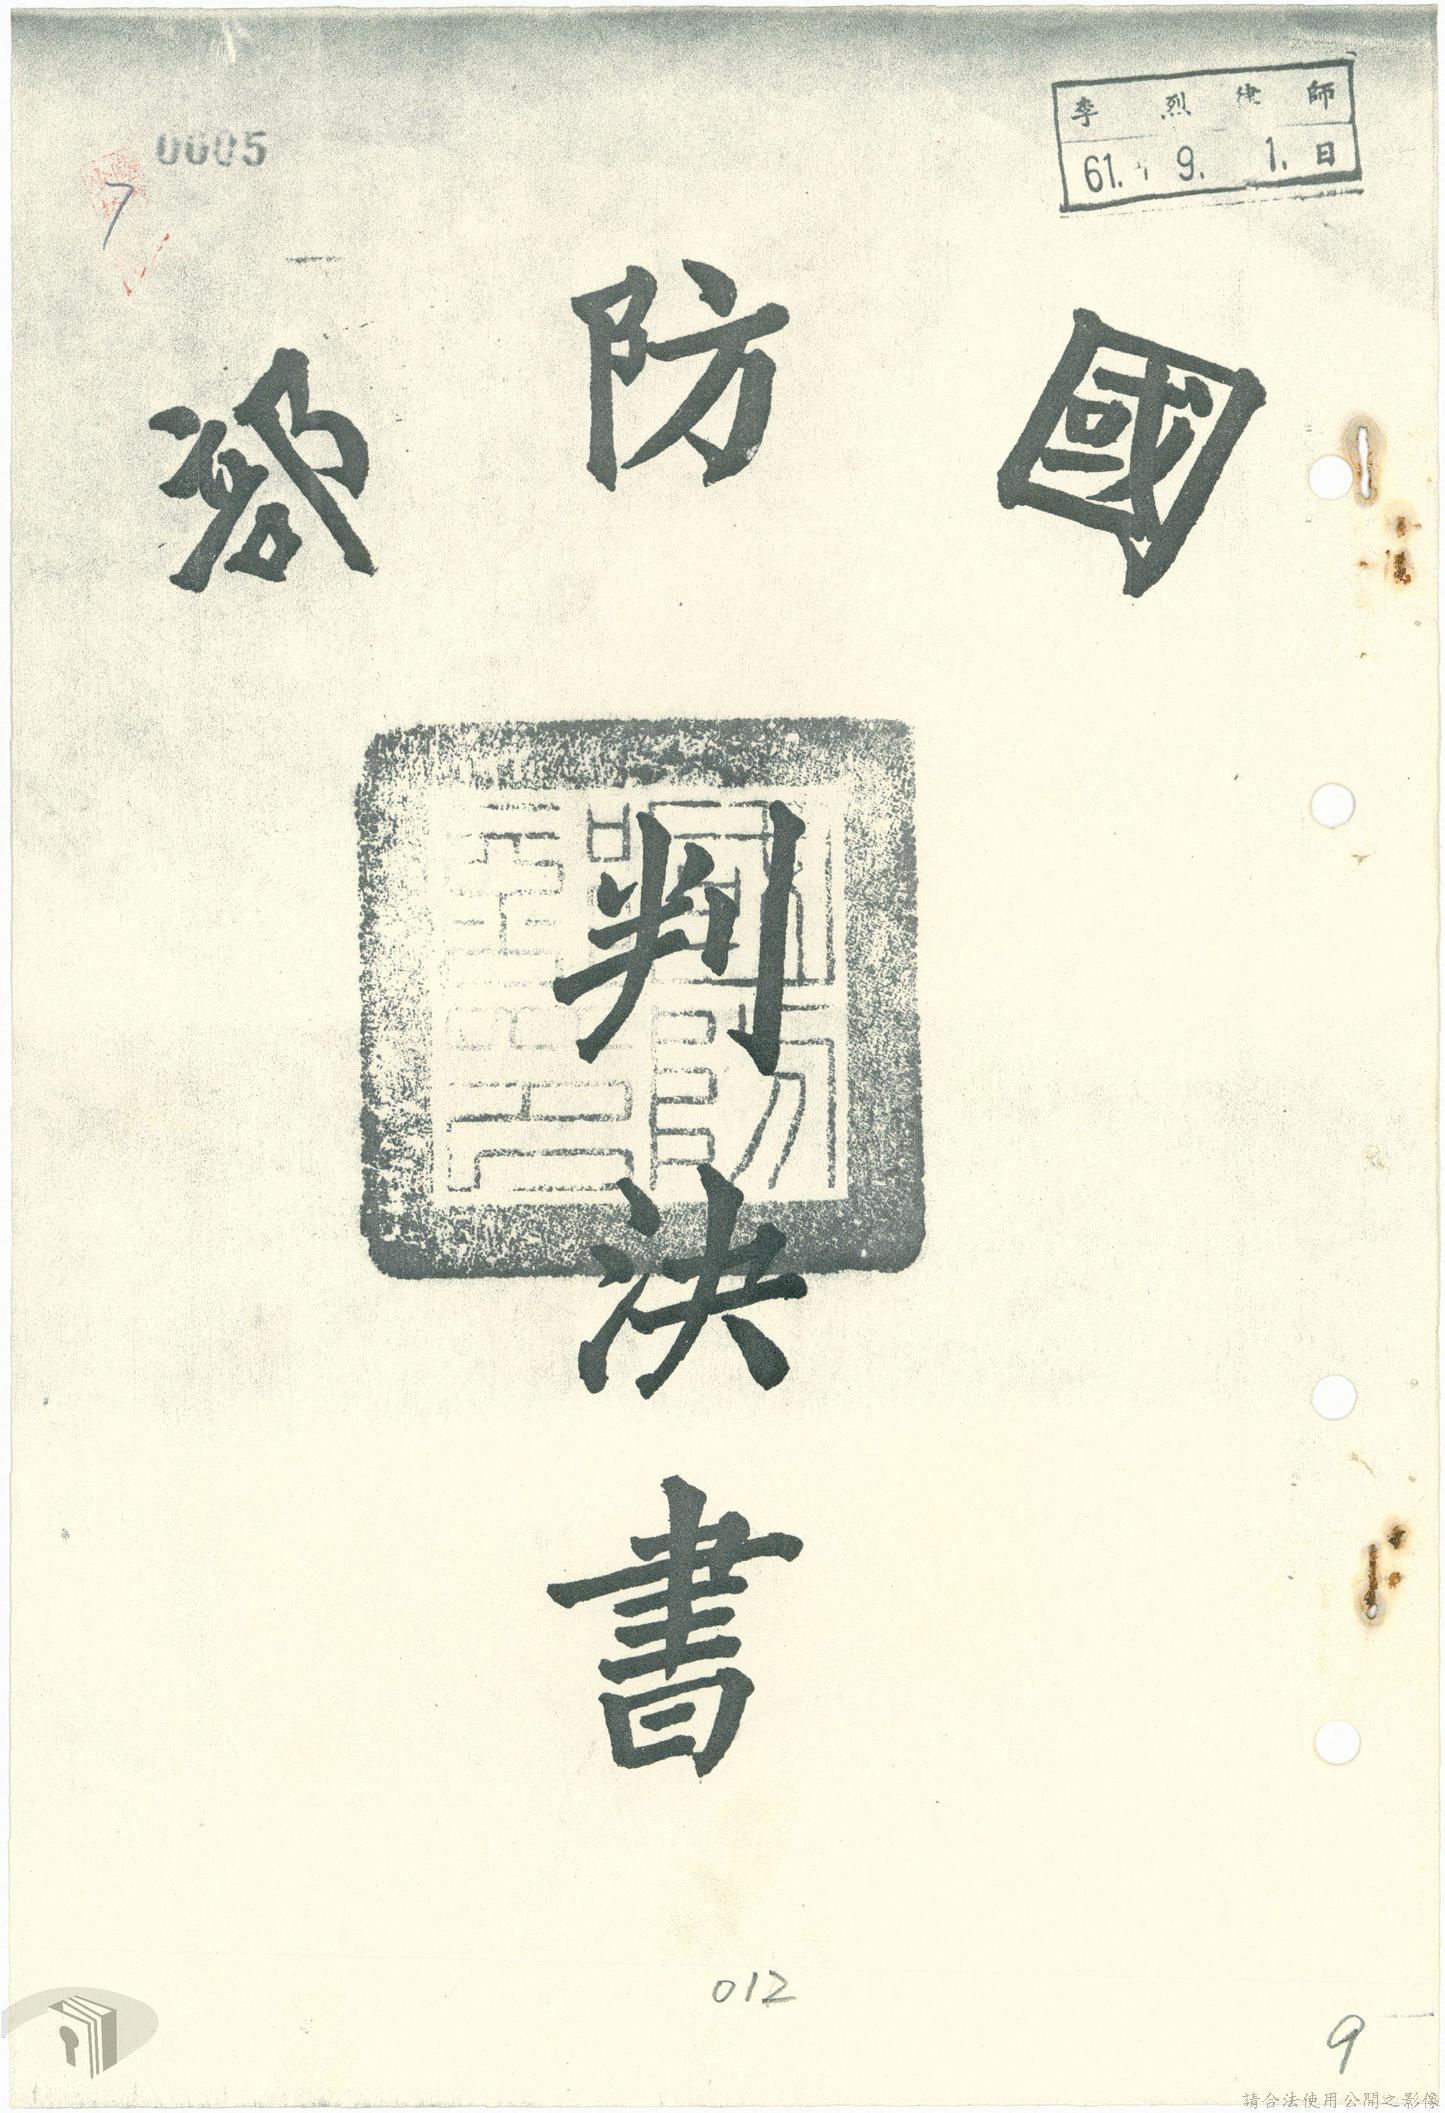 李烈律師
61. 9. 1. 日
0605
7
國防部
判決書
012
9
請合法使用公開之影像